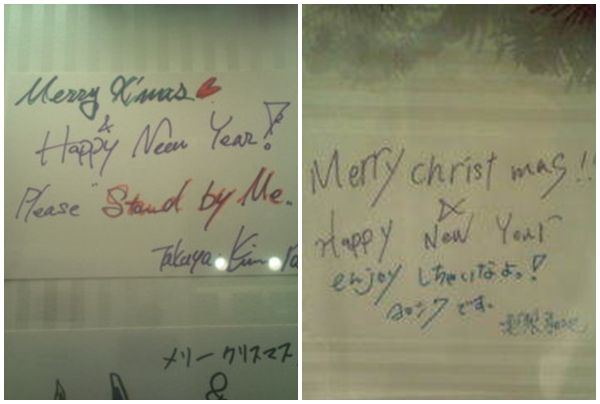 Merry X'mas
&
Happy New Year!
Please "Stand by Me.
Takuya. Kim
メリークリスマス
&
Merry christmas!!
&
Happy New Year
enjoy しちゃいなよっ!
です。